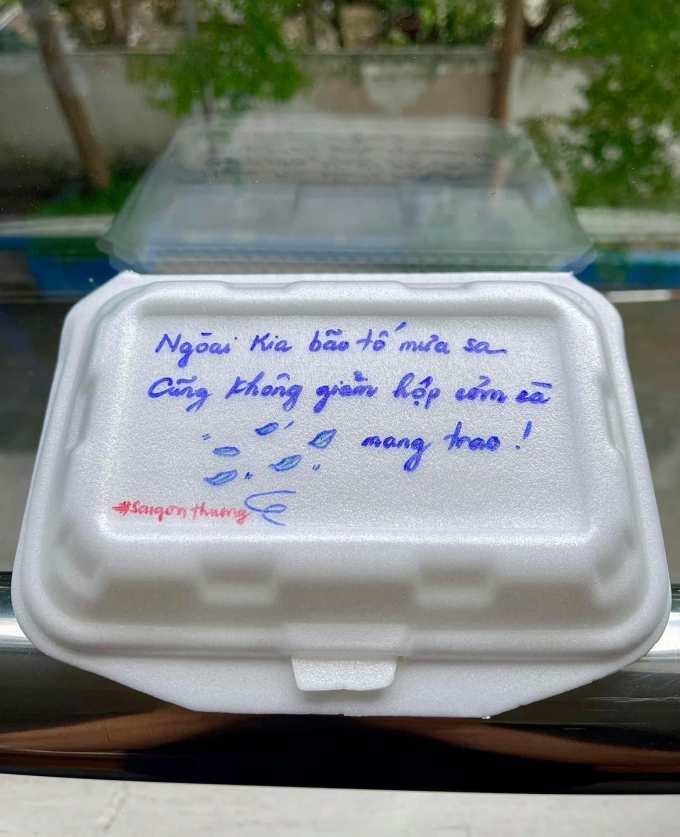 Ngoài kia bão tố mưa sa
Cũng không giảm hộp cơm cà
mang trao !
#saigonthuong